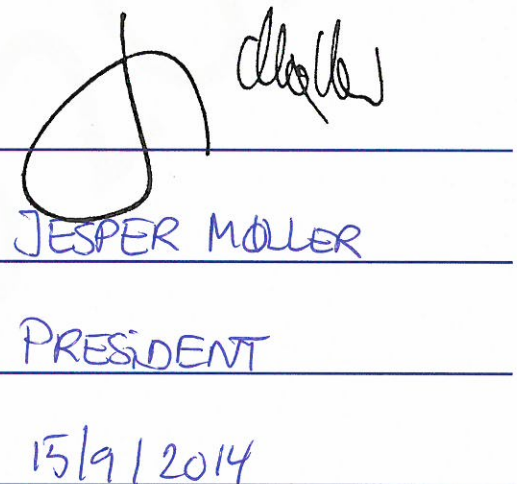 JESPER MØLLER
PRESIDENT
15/9/2014